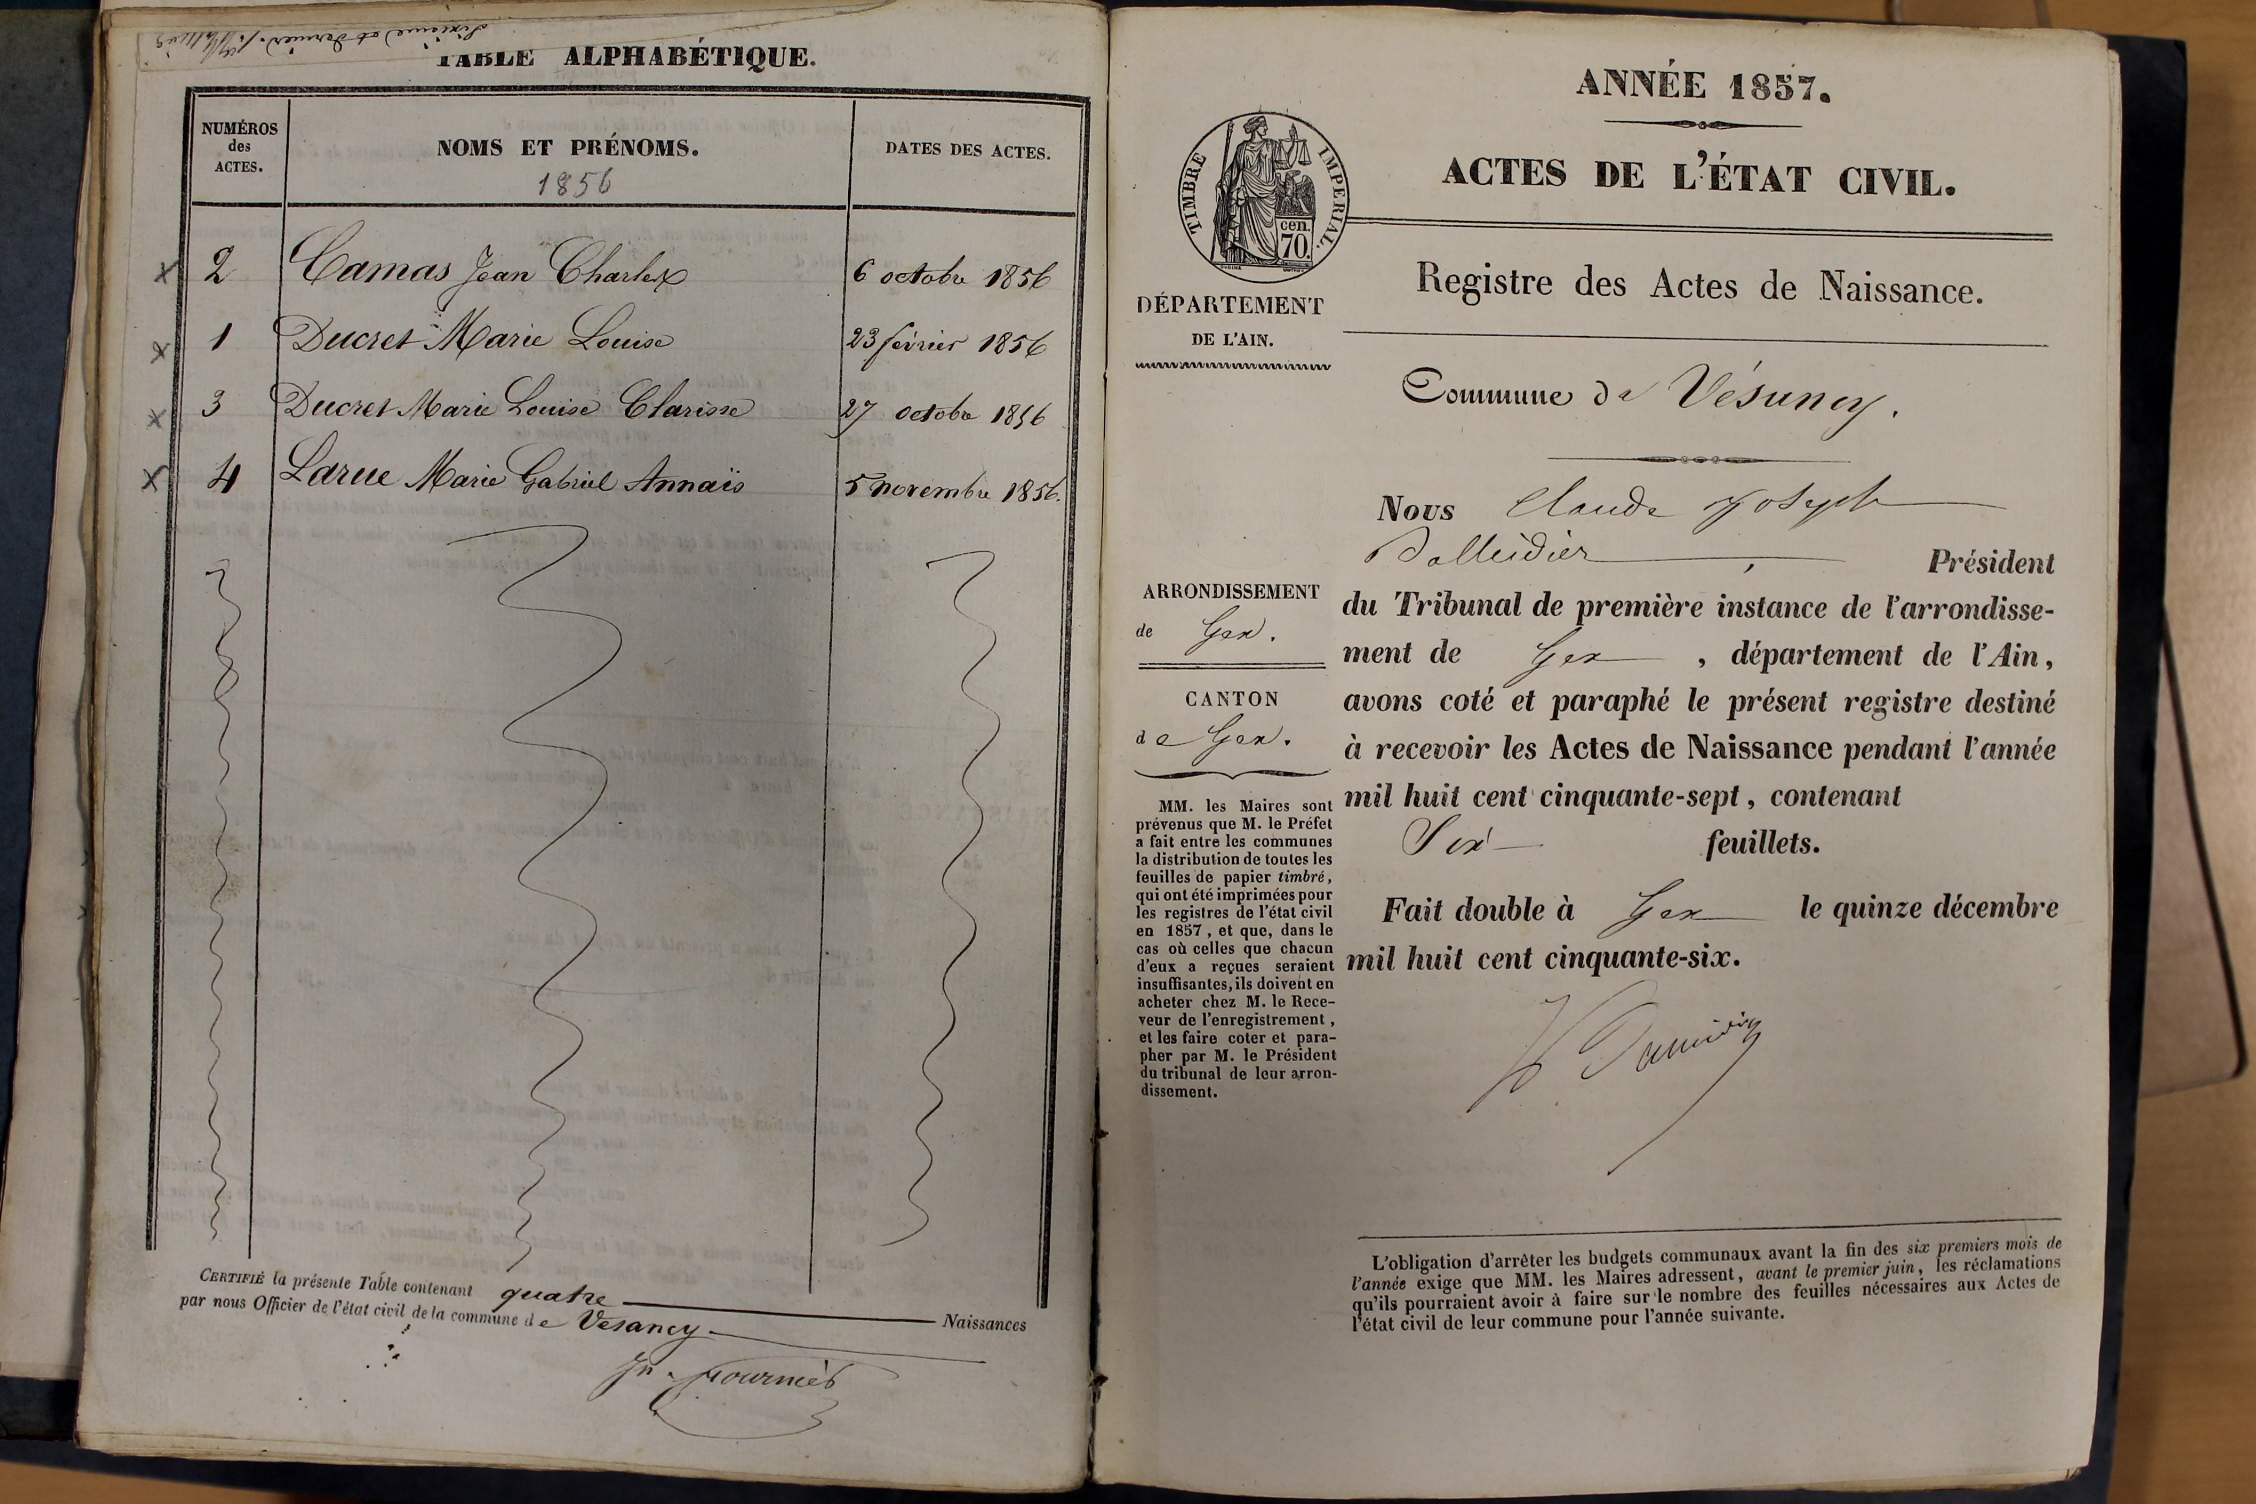 Sixième et dernier feuillet
TABLE ALPHABÉTIQUE.
NUMÉROS des ACTES. NOMS ET PRÉNOMS. DATES DES ACTES.
1856
2 Camas Jean Charles 6 octobre 1856
1 Ducret Marie Louise 23 février 1856
3 Ducret Marie Louise Clarisse 27 octobre 1856
4 Larue Marie Gabriel Annaïs 5 novembre 1856.
CERTIFIÉ la présente Table contenant quatre Naissances
par nous Officier de l'état civil de la commune de Vesancy
Jn. Fournier
ANNÉE 1857.
ACTES DE L'ÉTAT CIVIL.
TIMBRE IMPERIAL.
cen.
70.
Registre des Actes de Naissance.
DÉPARTEMENT
DE L'AIN.
Commune de Vésancy.
Nous Claude Joseph
Président
ARRONDISSEMENT
de Gex.
CANTON
de Gex.
du Tribunal de première instance de l'arrondisse-
ment de Gex, département de l'Ain,
avons coté et paraphé le présent registre destiné
à recevoir les Actes de Naissance pendant l'année
mil huit cent cinquante-sept, contenant
Six feuillets.
Fait double à Gex le quinze décembre
mil huit cent cinquante-six.
MM. les Maires sont
prévenus que M. le Préfet
a fait entre les communes
la distribution de toutes les
feuilles de papier timbré,
qui ont été imprimées pour
les registres de l'état civil
en 1857, et que, dans le
cas où celles que chacun
d'eux a reçues seraient
insuffisantes, ils doivent en
acheter chez M. le Rece-
veur de l'enregistrement,
et les faire coter et para-
pher par M. le Président
du tribunal de leur arron-
dissement.
L'obligation d'arrêter les budgets communaux avant la fin des six premiers mois de
l'année exige que MM. les Maires adressent, avant le premier juin, les réclamations
qu'ils pourraient avoir à faire sur le nombre des feuilles nécessaires aux Actes de
l'état civil de leur commune pour l'année suivante.